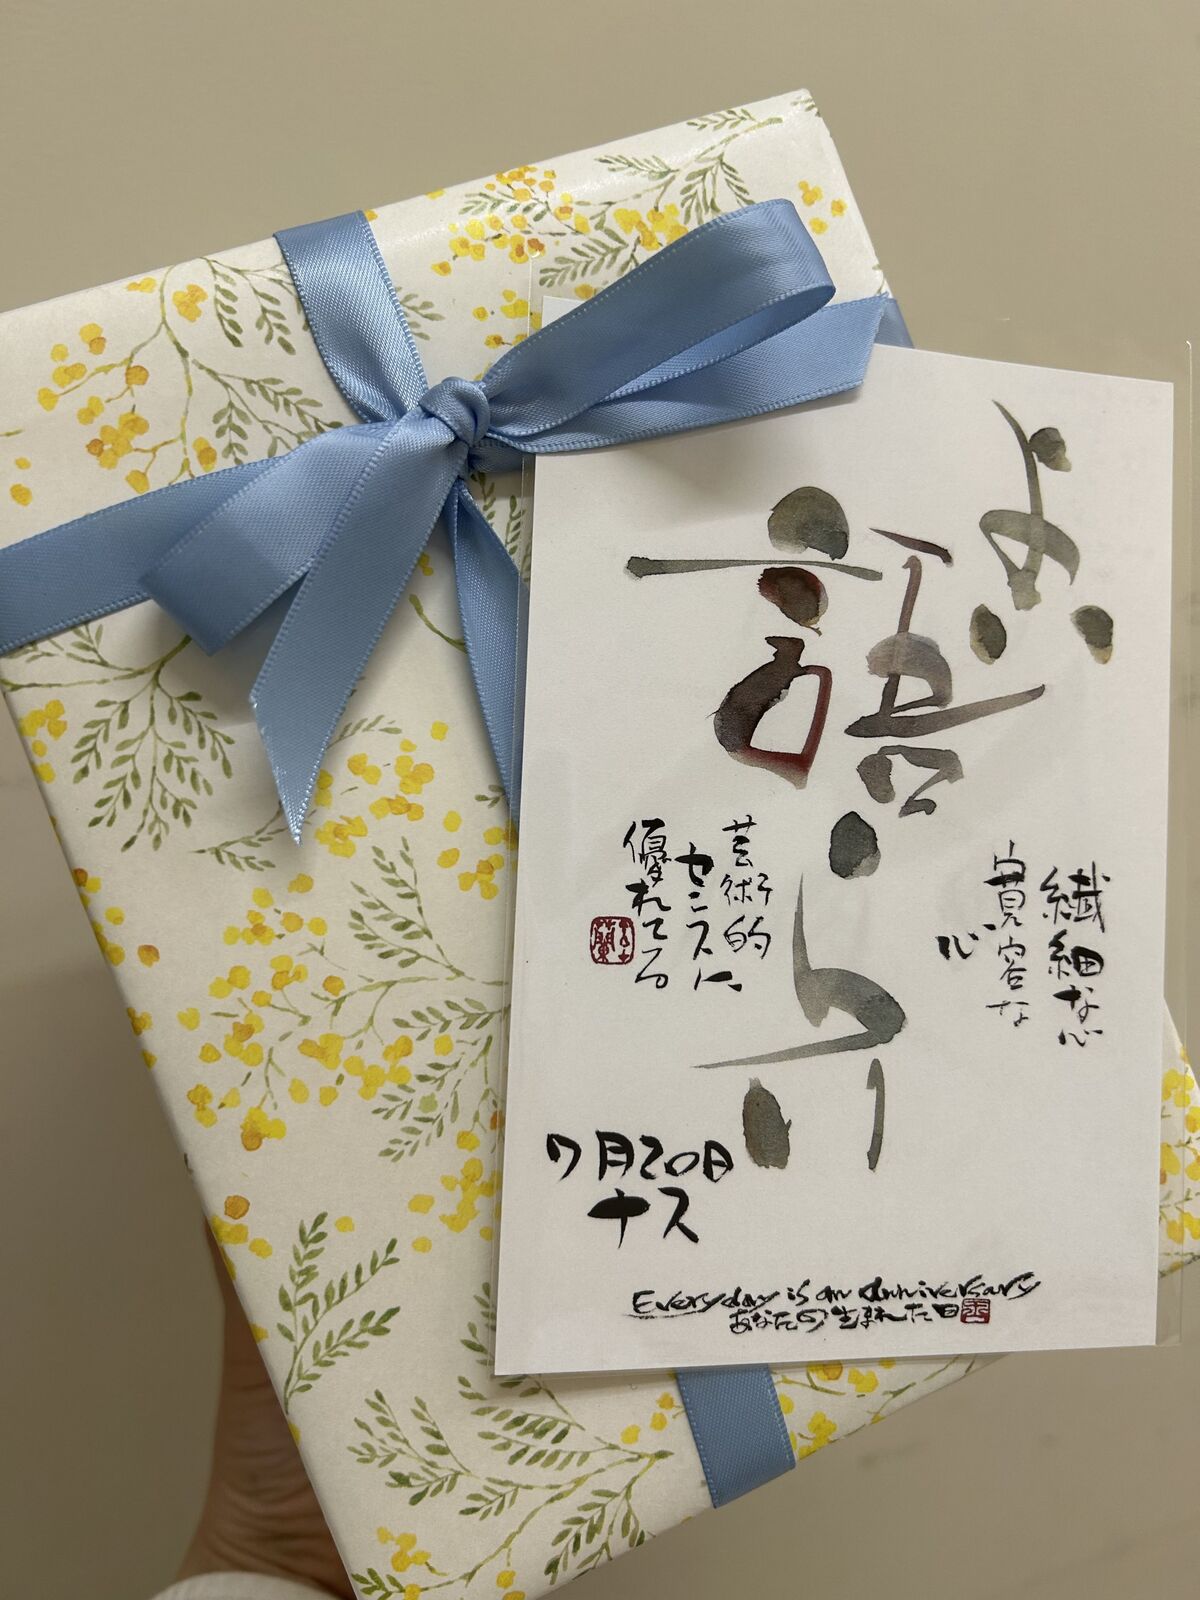 よい
語らい
繊細な心
寛容な
心
芸術的
センスに、
優れてる
7月20日
ナス
Everyday is an anniversary
あなたの生まれた日